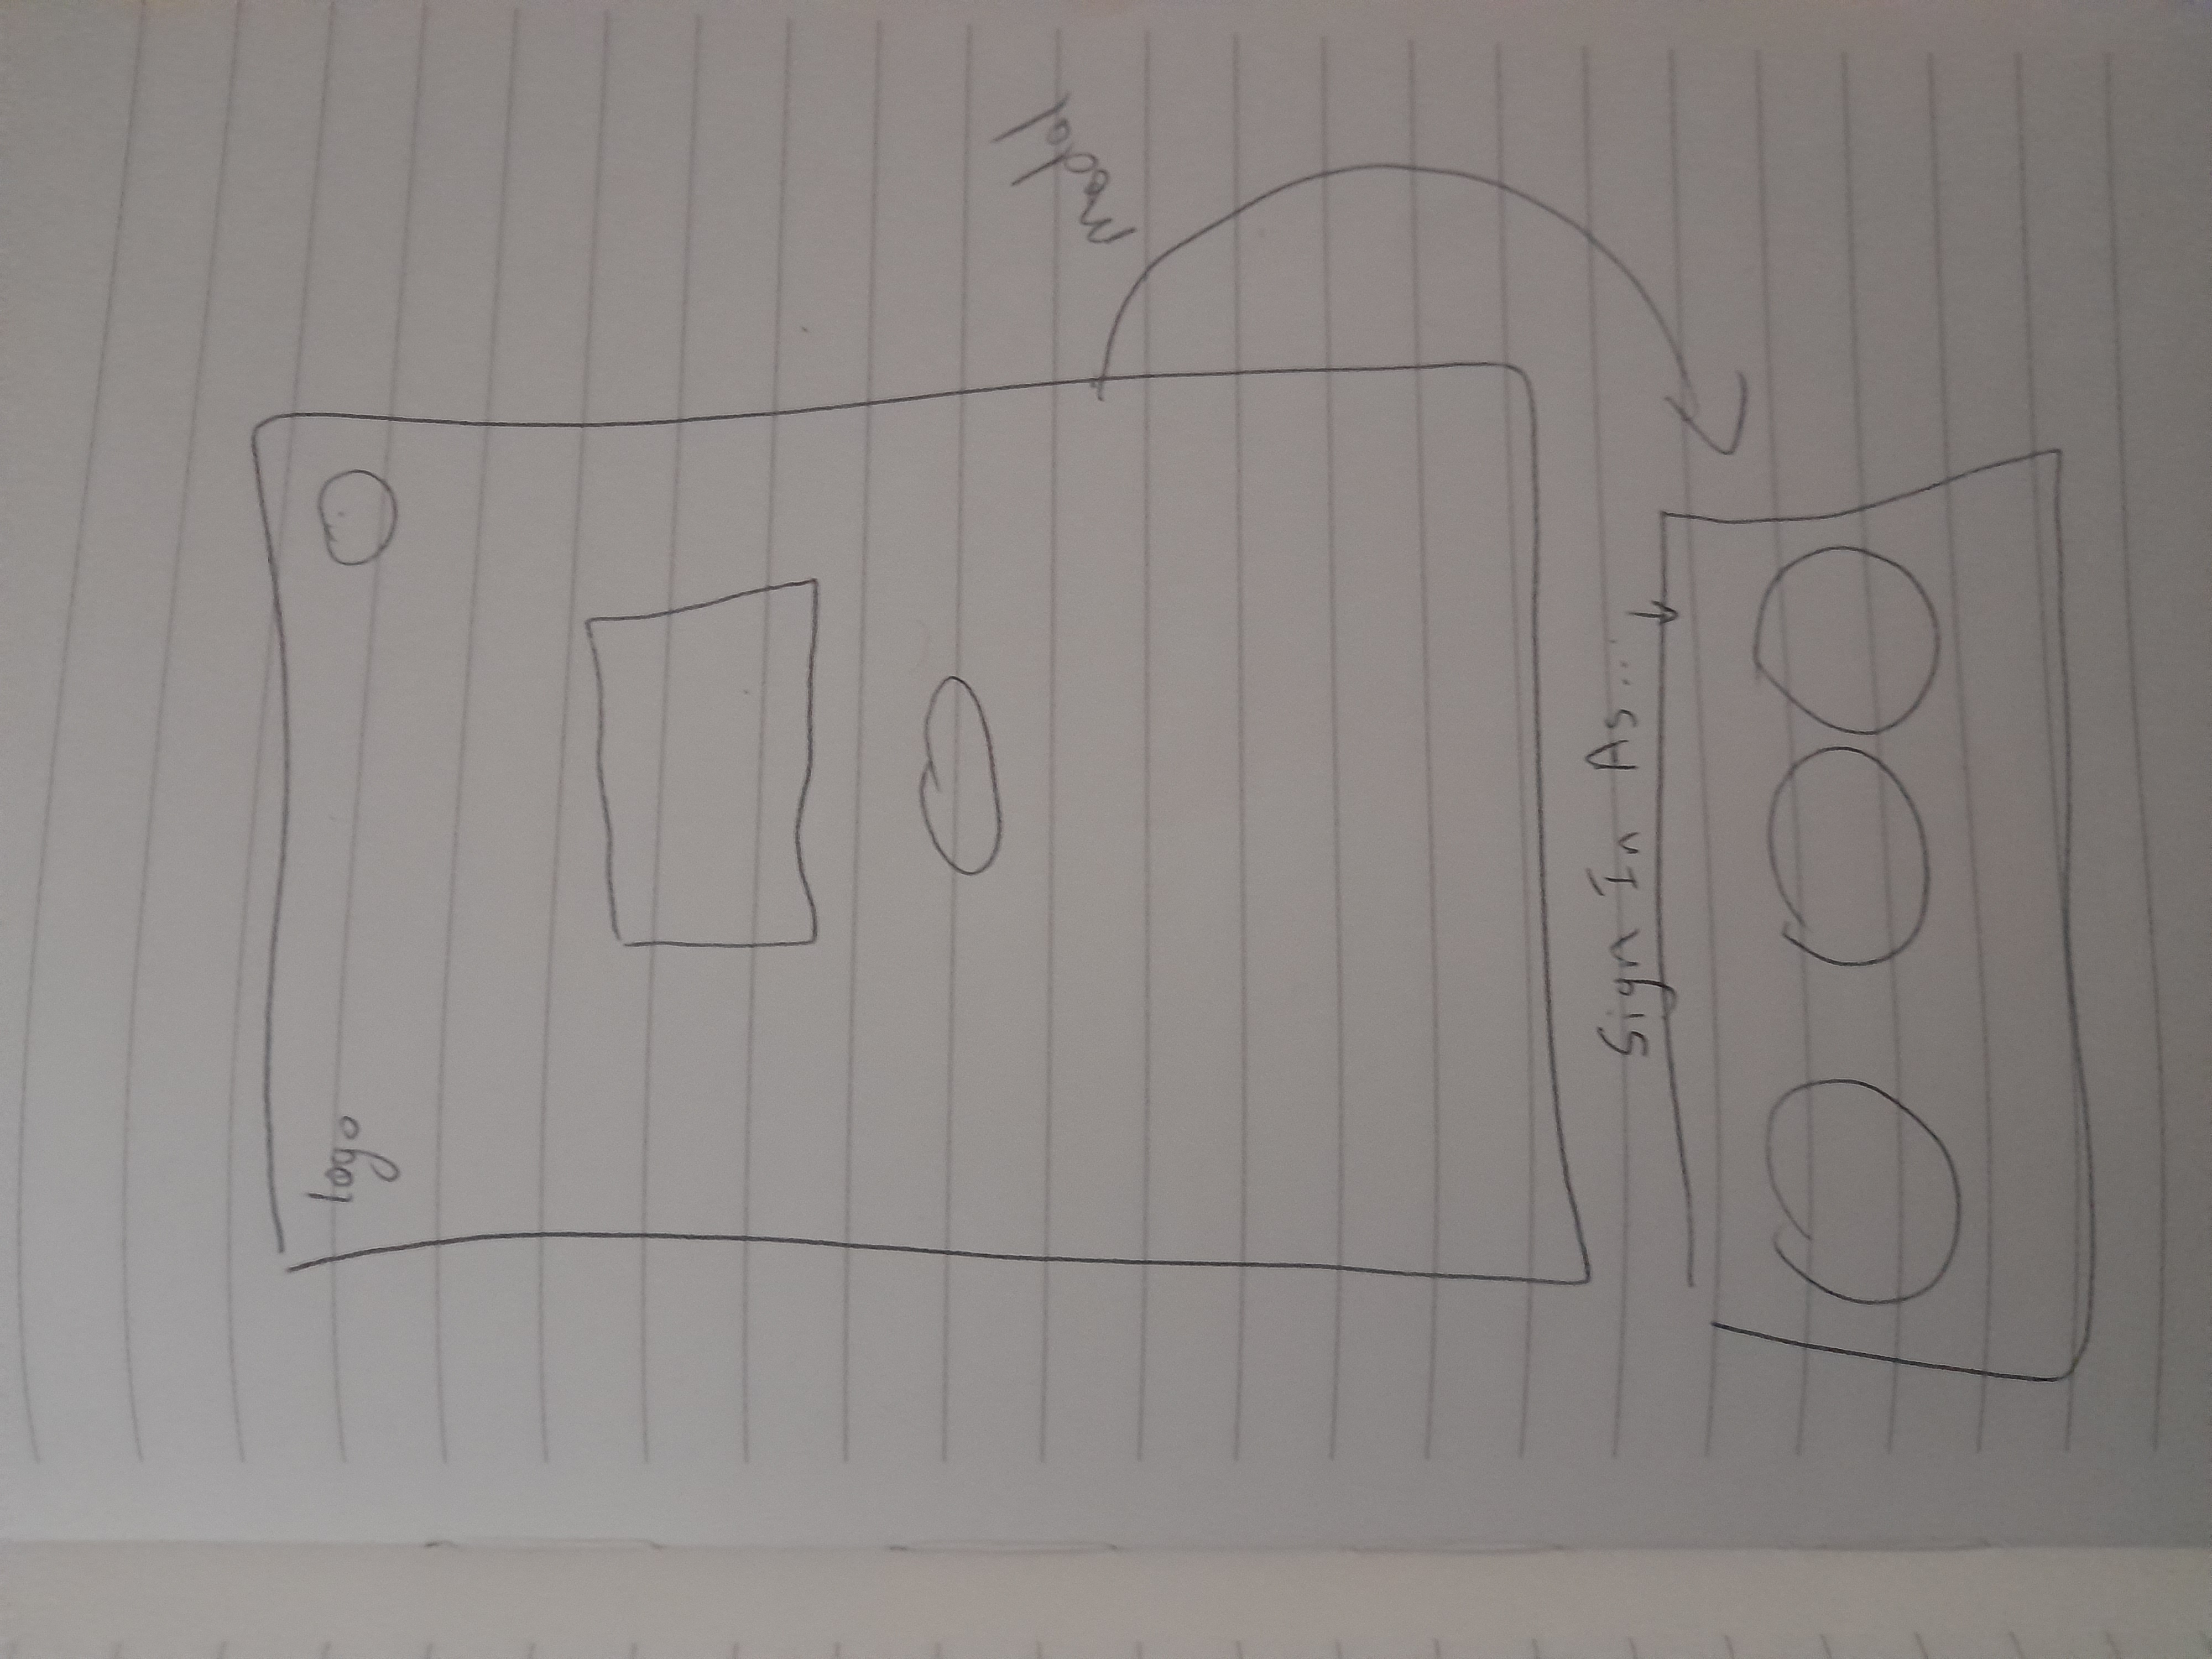 logo
modal
Sign In As...